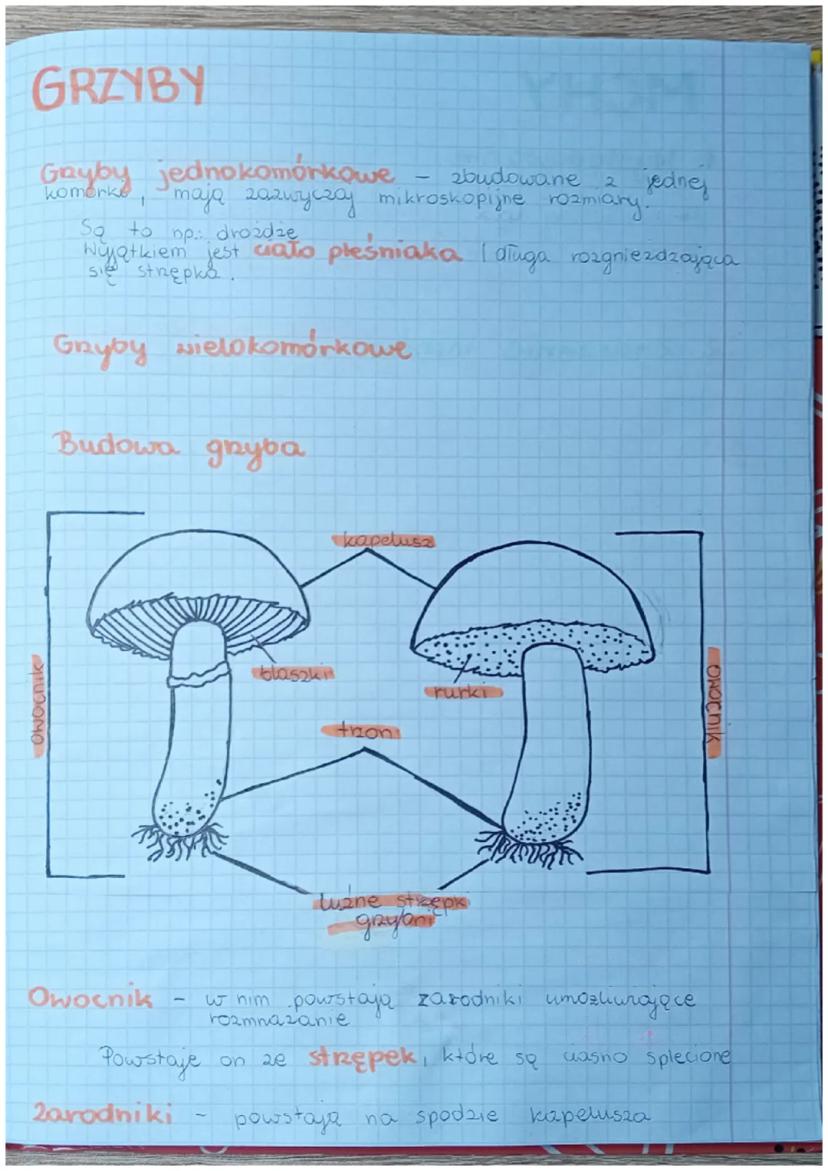 GRZYBY
Grzyby jednokomórkowe - zbudowane z jednej
komórki, mają zazwyczaj mikroskopijne rozmiary.
Są to np.: drożdże
Wyjątkiem jest ciało pleśniaka (długa rozgnieżdzająca
się strzępka.
Grzyby wielokomórkowe
Budowa grzyba
kapelusz
blaszki
rurki
owocnik
owocnik
trzon
luźne strzępk
grzybni
Owocnik - w nim powstają zarodniki umożliwiające
rozmnażanie
Powstaje on ze strzępek, które są ciasno splecione
Zarodniki - powstają na spodzie kapelusza